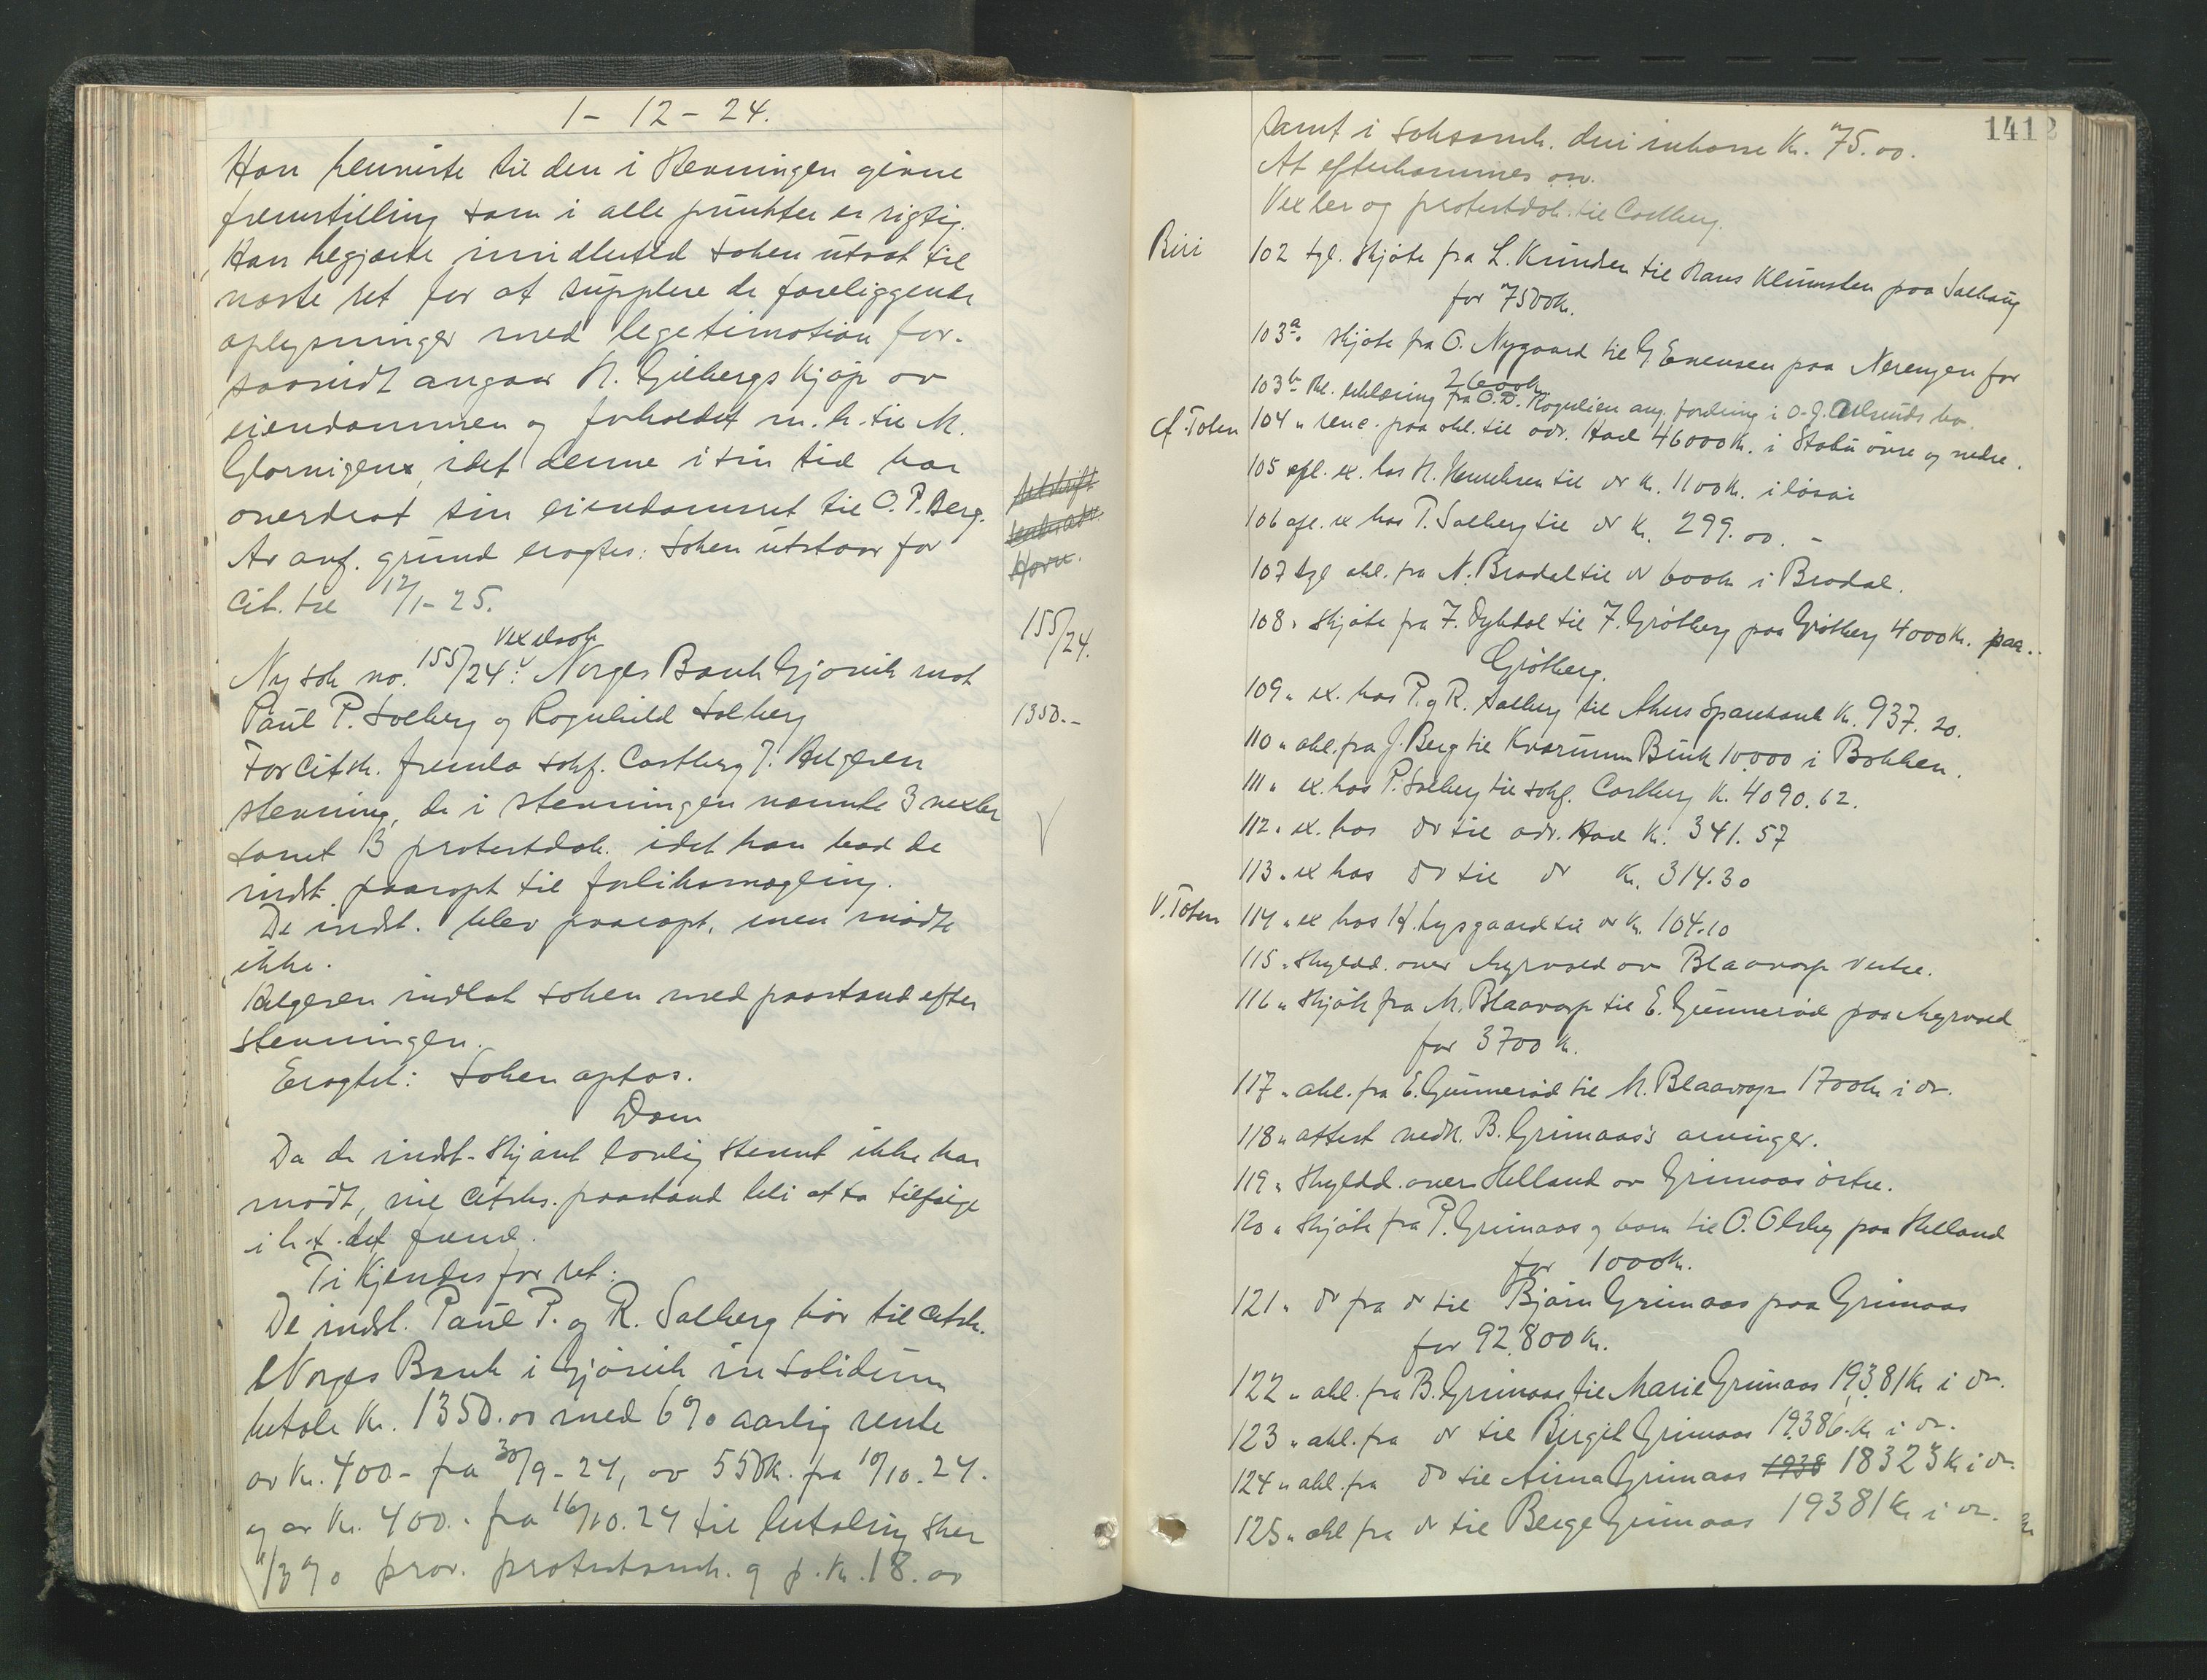 1 - 12 - 24.
Han henviste til den i stevningen givne
fremstilling som i alle punkter er rigtig.
Han begjærte imidlertid saken utsat til
næste ret for at supplere de foreliggende
oplysninger med legitimation for-
saavidt angaar N. Gilbergs kjøp av
eiendommen og forholdet m. h. til M.
idet denne i sin tid har
overdrat sin eiendomsret til O. P. Berg.
Av anf. grund eragtes: Saken utstaar for
cit. til 12/1-25.
Vexelsak
Ny sak no. 155/24: Norges Bank Gjøvik mot
Paul P. Solberg og Ragnhild Solberg
For citsk. fremla sakf. Castberg j. Helgesen
stevning, de i stevningen nævnte 3 vexler
samt 3 protestdok. idet han bad de
indst. paaropt til forliksmægling.
De indst. blev paaropt, men mødte
ikke.
Helgesen indlot saken med paastand efter
stevningen.
Eragtet: Saken optas.
Dom
Da de indst. skjønt lovlig stevnt ikke har
mødt, vil citsks. paastand bli at ta tilfølge
i h. t. det freml.
Ti kjendes for ret:
De indst. Paul P. og R. Solberg bør til citsk.
Norges Bank i Gjøvik in solidum
betale kr. 1350.00 med 6% aarlig rente
av kr. 400 - fra 30/9-24, av 550 kr. fra 10/10.24.
og av kr. 400.- fra 16/10.24 til betaling sker
1/3 % prov. protestomk. og p. kr. 18.00
Utskrift
Horn.
155/24.
1350.-
1412
samt i saksomk. den inkasse kr. 75.00.
At efterkommes o.s.v.
Vexler og protestdok. til Castberg.
Biri
102 tgl. skjøte fra L. Knudsen til Hans Klumsten paa Solhaug
for 7500 kr.
103a. skjøte fra O. Nygaard til G. Evensen paa Nerengen for
2600 kr
103b. tgl. erklæring fra O. D. ang. fordring i O. J. bo.
Ø. Toten
104 " renc. paa obl. til adv. Hoel 46000 kr. i Stabu øvre og nedre.
105 afl. ex. hos N. Henriksen til dr kr. 1100 kr. i løsøi
106 afl. ex hos P. Solberg til dr kr. 299.00. -
107 tgl obl. fra N. Brodal til dr 600 kr i Brodal.
108 " skjøte fra F. Dyhdal til F. Grøtberg paa Grøtberg 4000 kr. paa..
Grøtberg.
109 " ex. hos P. og R. Solberg til Akers Sparebank kr. 937.20.
110 " obl. fra J. Berg til Kværnum Bruk 10.000 i Bakken.
111 " ex. hos P. Solberg til sakf. Castberg kr. 4090.62.
112 " ex. hos do til adv. Hoel kr. 341.57
113 " ex hos do til dr kr. 314.30
V. Toten
114 " ex hos H. Lysgaard til dr kr. 104.10
115 " skyldd. over Myrvold av Blaavarp vestre.
116 " skjøte fra M. Blaavarp til E. Gunnerød paa Myrvold
for 3700 kr.
117 " obl. fra E. Gunnerød til M. Blaavarp 1700 kr i dr.
118 " attest vedk. B. Grimaas's arvinger.
119 " skyldd. over Helland av Grimaas østre.
120 " skjøte fra P. Grimaas og barn til O. Olsby paa Helland
for 1000 kr.
121 " dr fra dr til Bjørn Grimaas paa Grimaas
for 92.800 kr.
122 " obl. fra B. Grimaas til Marie Grimaas 19381 kr i dr.
123 " obl. fra dr til Birgit Grimaas 19386 kr i dr.
124 " obl. fra do til Anna Grimaas 1938 18323 kr i dr.
125 " obl fra dr til Berge Grimaas 19381 kr i dr.